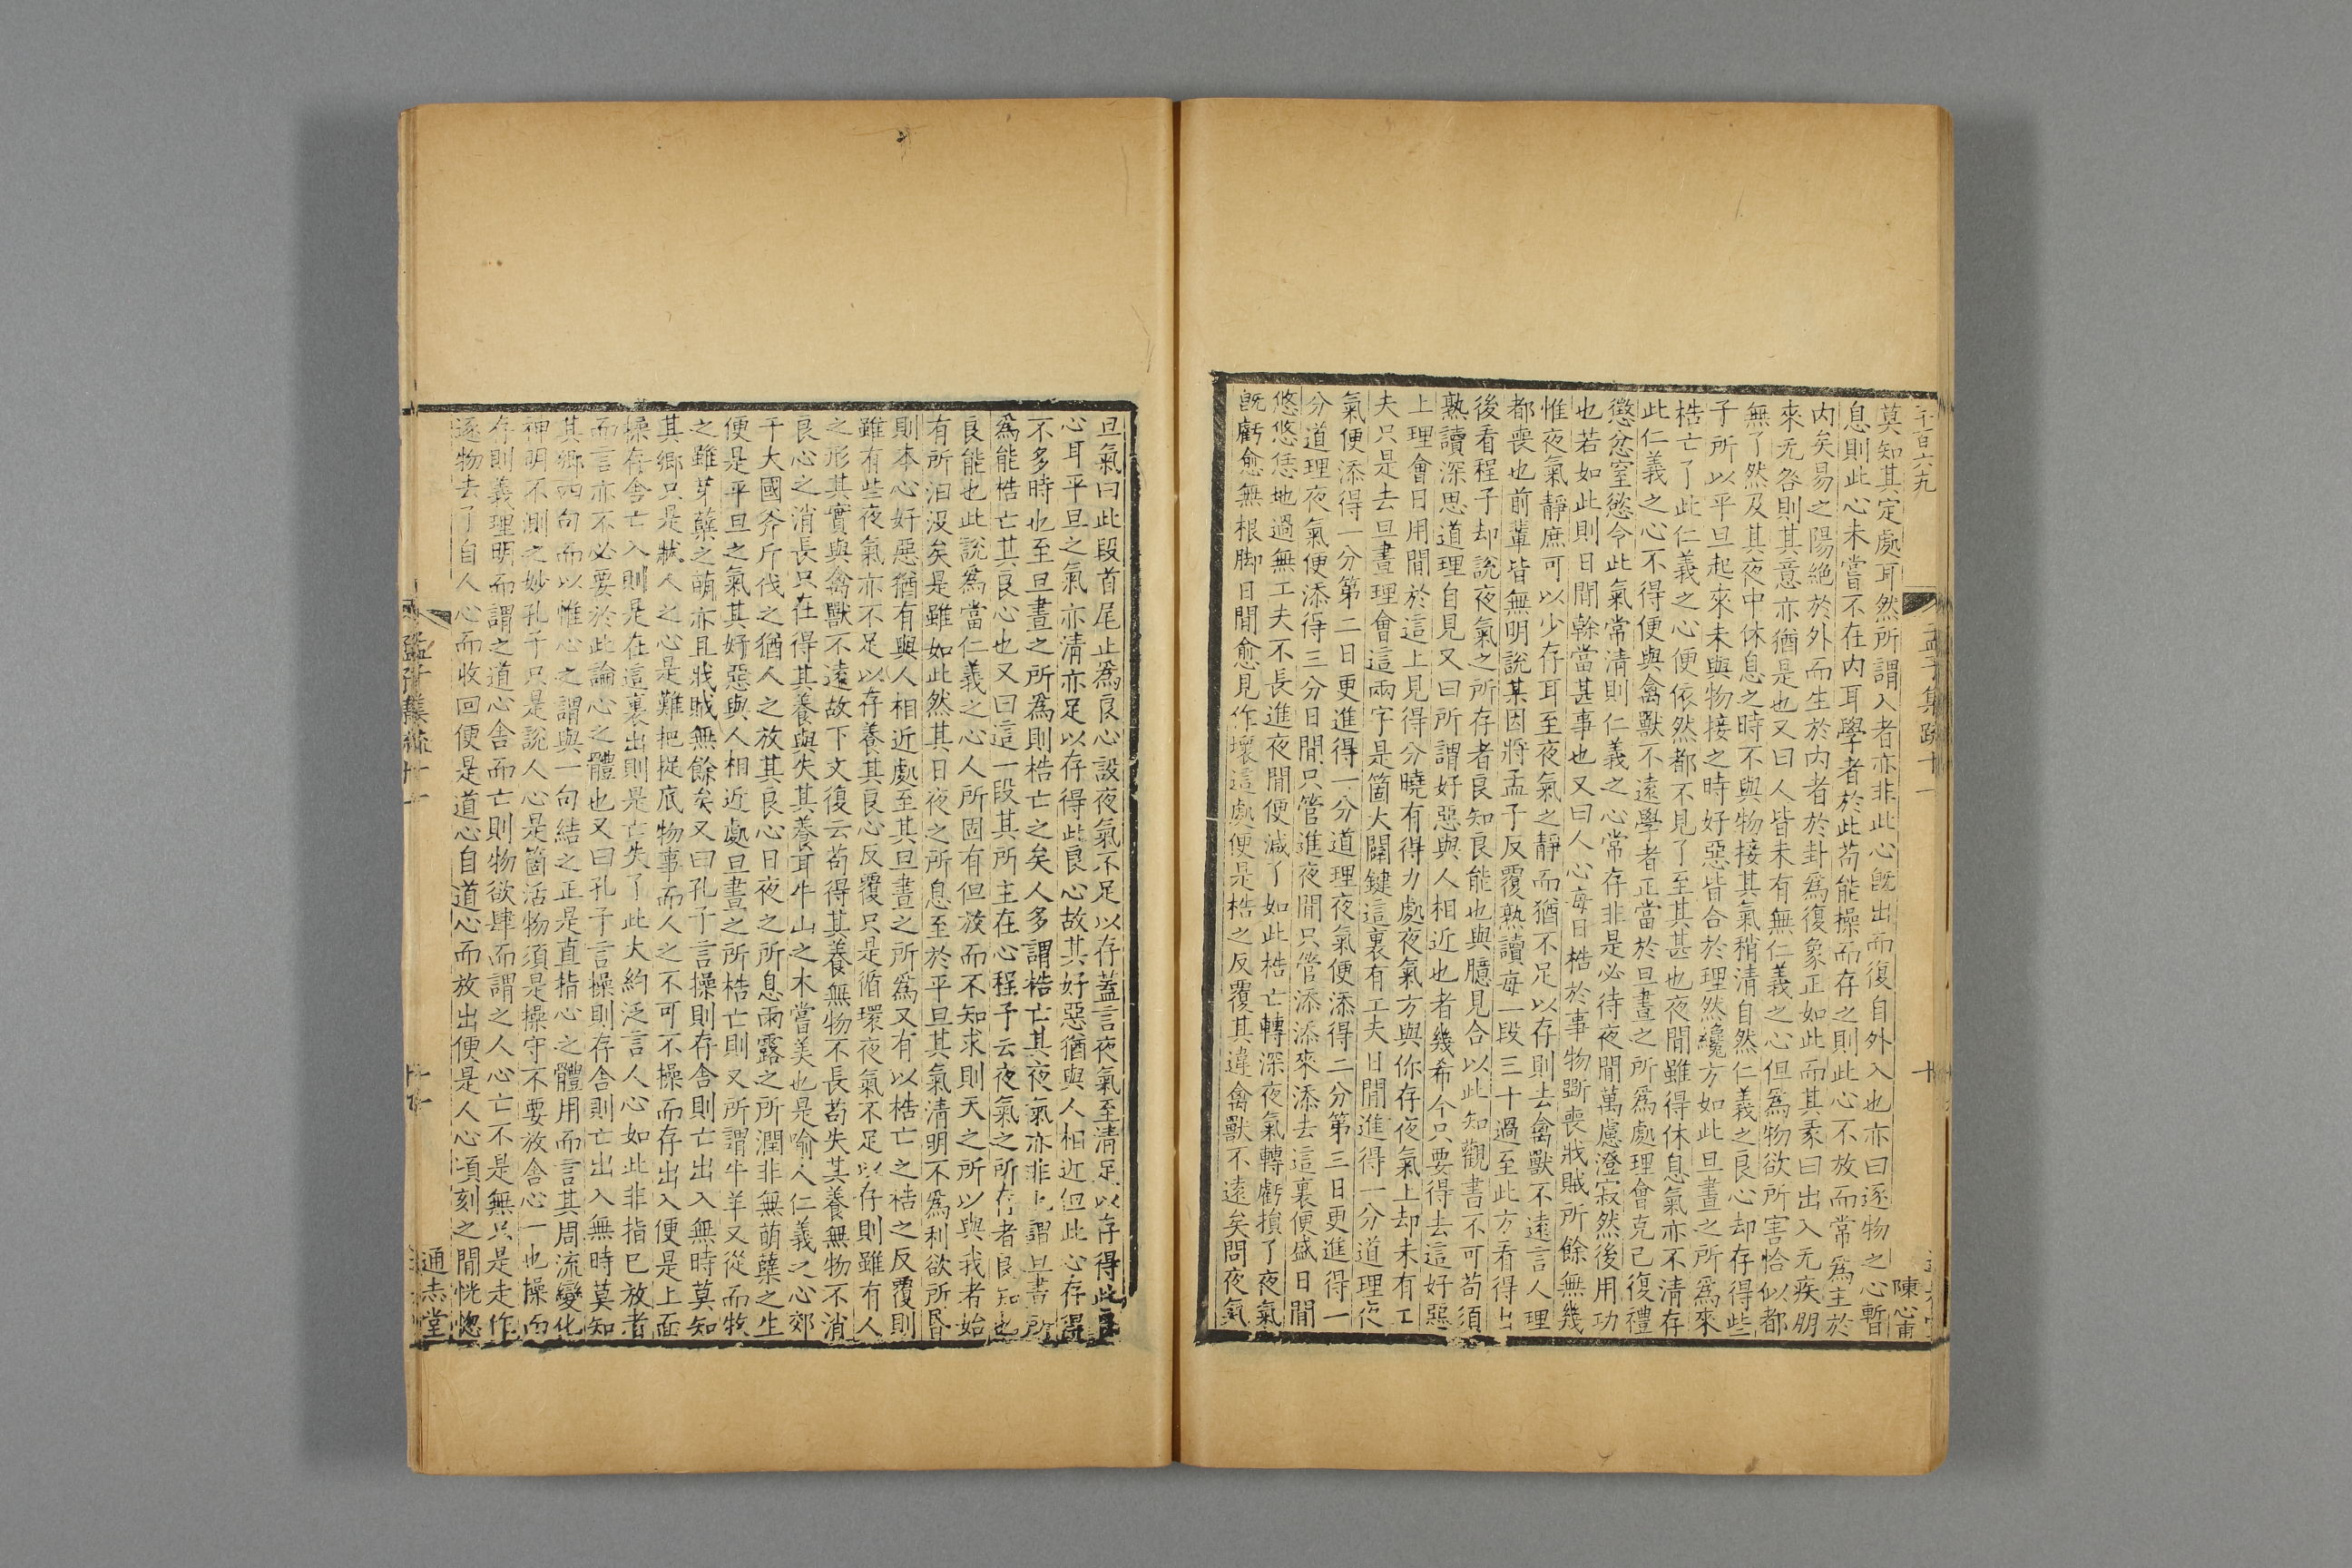 千百六九
孟子集疏十一
陳心甫
莫知其定處耳然所謂入者亦非此心旣出而復自外入也亦曰逐物之心暫
息則此心未嘗不在内耳學者於此苟能操而存之則此心不放而常爲主於
内矣易之陽絶於外而生於内者於卦爲復象正如此而其彖曰出入无疾朋
來无咎則其意亦猶是也又曰人皆未有無仁義之心但爲物欲所害恰似都
無了然及其夜中休息之時不與物接其氣稍清自然仁義之良心却存得些
子所以平旦起來未與物接之時好惡皆合於理然纔方如此旦晝之所爲來
梏亡了此仁義之心便依然都不見了至其甚也夜間雖得休息氣亦不清存
此仁義之心不得便與禽獸不遠學者正當於旦晝之所爲處理會克己復禮
懲忿窒慾令此氣常清則仁義之心常存非是必待夜間萬慮澄寂然後用功
也若如此則日間幹當甚事也又曰人心每日梏於事物斲喪戕賊所餘無幾
惟夜氣靜庶可以少存耳至夜氣之靜而猶不足以存則去禽獸不遠言人理
都喪也前輩皆無明說某因將孟子反覆熟讀每一段三十過至此方看得出
後看程子却說夜氣之所存者良知良能也與臆見合以此知觀書不可苟須
熟讀深思道理自見又曰所謂好惡與人相近也者幾希今只要得去這好惡
上理會日用間於這上見得分曉有得力處夜氣方與你存夜氣上却未有工
夫只是去旦晝理會這兩字是箇大關鍵這裏有工夫日間進得一分道理夜
氣便添得一分第二日更進得一分道理夜氣便添得二分第三日更進得一
分道理夜氣便添得三分日間只管進夜間只管添添來添去這裏便盛日間
悠悠恁地過無工夫不長進夜間便減了如此梏亡轉深夜氣轉虧損了夜氣
旣虧愈無根脚日間愈見作壞這處便是梏之反覆其違禽獸不遠矣問夜氣
旦氣曰此段首尾止爲良心設夜氣不足以存蓋言夜氣至清足以存得此良
心耳平旦之氣亦清亦足以存得此良心故其好惡猶與人相近但此心存得
不多時也至旦晝之所爲則梏亡之矣人多謂梏亡其夜氣亦非也謂旦晝所
爲能梏亡其良心也又曰這一段其所主在心程子云夜氣之所存者良知也
良能也此說爲當仁義之心人所固有但放而不知求則天之所以與我者始
有所汩没矣是雖如此然其日夜之所息至於平旦其氣清明不爲利欲所昏
則本心好惡猶有與人相近處至其旦晝之所爲又有以梏亡之梏之反覆則
雖有些夜氣亦不足以存養其良心反覆只是循環夜氣不足以存則雖有人
之形其實與禽獸不遠故下文復云苟得其養無物不長苟失其養無物不消
良心之消長只在得其養與失其養耳牛山之木嘗美也是喻人仁義之心郊
于大國斧斤伐之猶人之放其良心日夜之所息雨露之所潤非無萌蘖之生
便是平旦之氣其好惡與人相近處旦晝之所梏亡則又所謂牛羊又從而牧
之雖芽蘖之萌亦且戕賊無餘矣又曰孔子言操則存舍則亡出入無時莫知
其鄉只是狀人之心是難把捉底物事而人之不可不操而存出入便是上面
操存舍亡入則是在這裏出則是亡失了此大約泛言人心如此非指已放者
而言亦不必要於此論心之體也又曰孔子言操則存舍則亡出入無時莫知
其鄉四句而以惟心之謂與一句結之正是直指心之體用而言其周流變化
神明不測之妙孔子只是說人心是箇活物須是操守不要放舍心一也操而
存則義理明而謂之道心舍而亡則物欲肆而謂之人心亡不是無只是走作
逐物去了自人心而收回便是道心自道心而放出便是人心頃刻之間恍惚
孟子集疏十一
通志堂